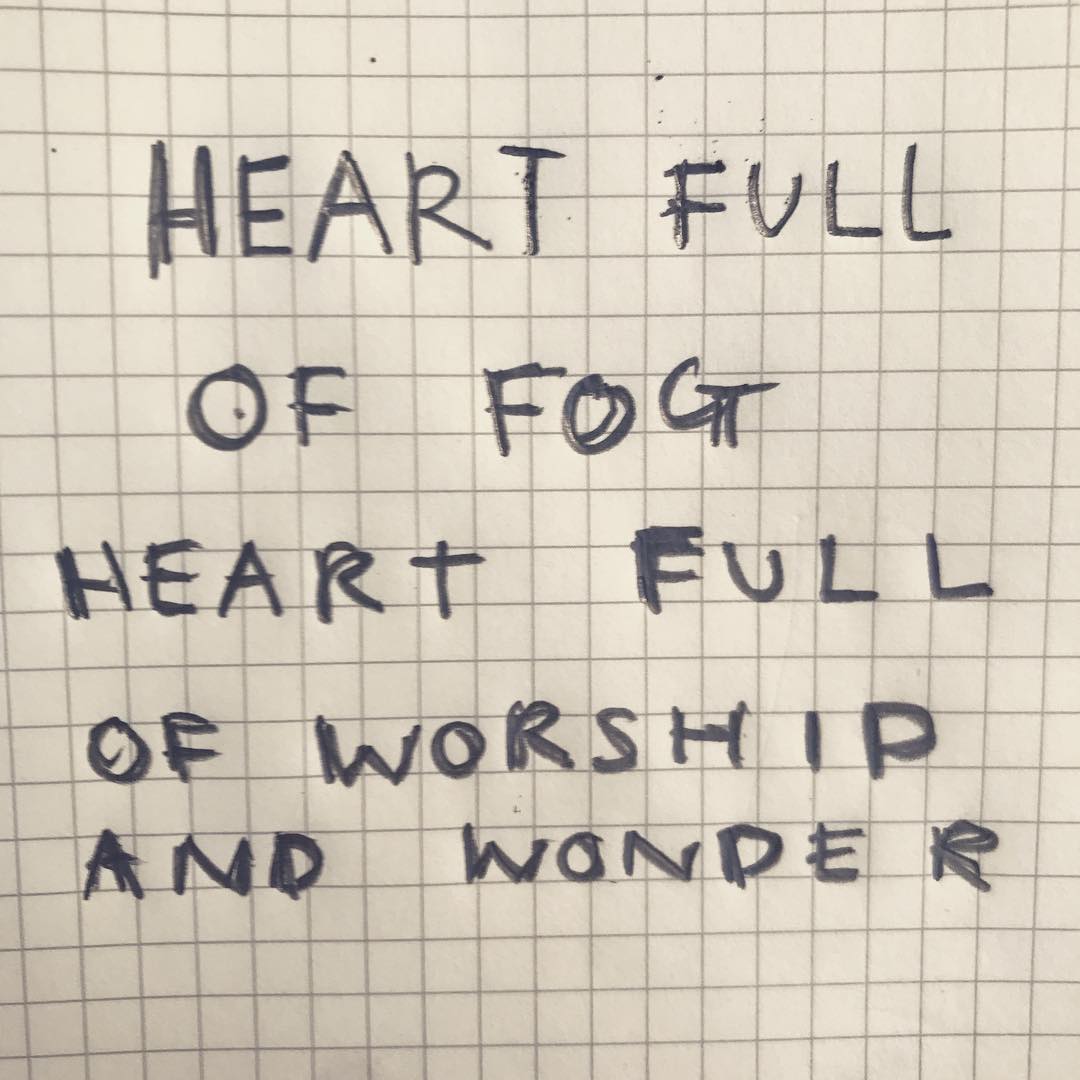 HEART FULL
OF FOG
HEART FULL
OF WORSHIP
AND WONDER